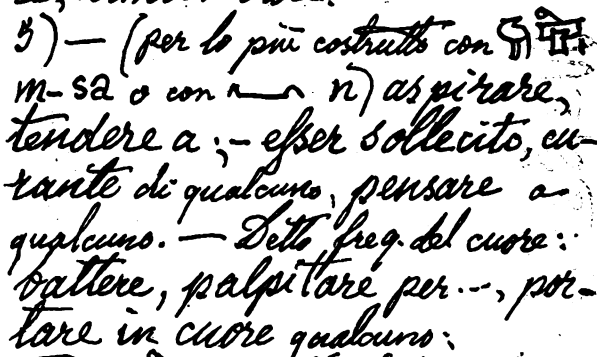 5) — (per lo più costrutto con
m-sa o con n) aspirare,
tendere a ; – esser sollecito, cu-
rante di qualcuno, pensare a
qualcuno. — Detto freq. del cuore :
battere, palpitare per ..., por-
tare in cuore qualcuno ;